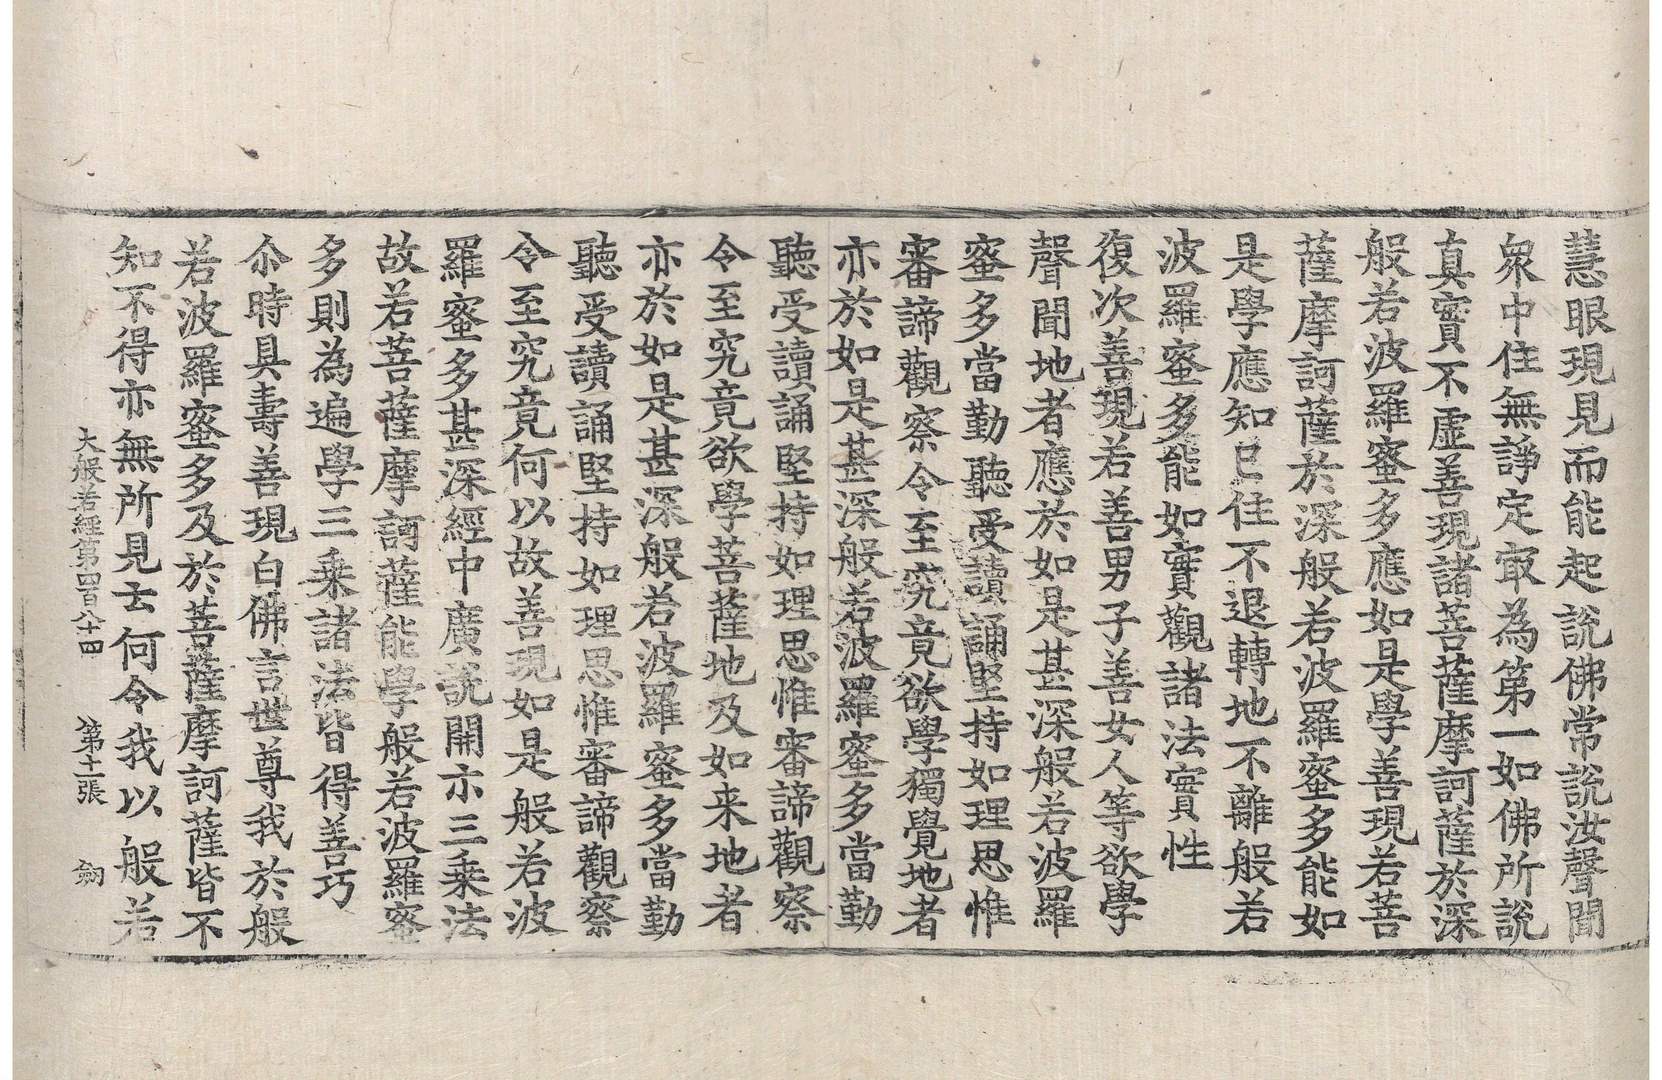 慧眼現見而能起說佛常說汝聲聞
衆中住無諍定㝡為第一如佛所說
真實不虛善現諸菩薩摩訶薩於深
般若波羅蜜多應如是學善現若菩
薩摩訶薩於深般若波羅蜜多能如
是學應知已住不退轉地不離般若
波羅蜜多能如實觀諸法實性
復次善現若善男子善女人等欲學
聲聞地者應於如是甚深般若波羅
蜜多當勤聽受讀誦堅持如理思惟
審諦觀察令至究竟欲學獨覺地者
亦於如是甚深般若波羅蜜多當勤
聽受讀誦堅持如理思惟審諦觀察
令至究竟欲學菩薩地及如来地者
亦於如是甚深般若波羅蜜多當勤
聽受讀誦堅持如理思惟審諦觀察
令至究竟何以故善現如是般若波
羅蜜多甚深經中廣說開示三乗法
故若菩薩摩訶薩能學般若波羅蜜
多則為遍學三乗諸法皆得善巧
尒時具壽善現白佛言世尊我於般
若波羅蜜多及於菩薩摩訶薩皆不
知不得亦無所見云何令我以般若
大般若經第四百八十四 第十一張 劒